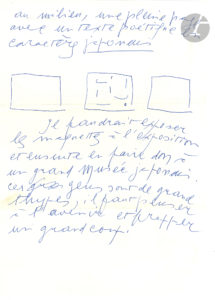 au milieu, une pleine page
avec un texte poétique et
caractère japonais
Il faudrait exposer
les maquettes à l'exposition
et ensuite en faire don à
un grand musée japonais.
ces gens sont de grand
types, il faut penser
à l'avenir et frapper
un grand coup.